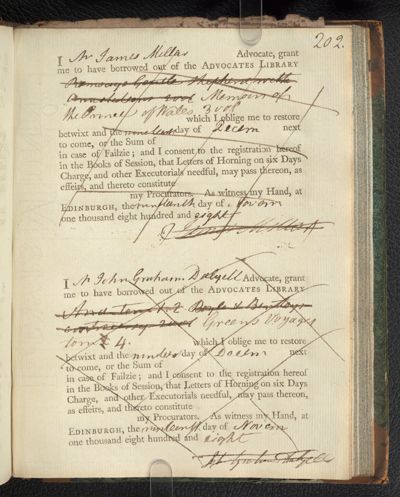 202.
I Mr James Millar Advocate, grant
me to have borrowed out of the ADVOCATES LIBRARY
Ramsays Gentle Shepherd with
2 vol Memoirs of
the Prince of Wales 3 vol
which I oblige me to restore
betwixt and the nineteen day of Decem next
to come, or the Sum of
in case of Failzie; and I consent to the registration hereof
in the Books of Session, that Letters of Horning on six Days
Charge, and other Executorials needful, may pass thereon, as
effeirs, and thereto constitute
my Procurators. As witness my Hand, at
EDINBURGH, the nineteenth day of Novem
one thousand eight hundred and eight
I Mr John Graham Dalyell Advocate, grant
me to have borrowed out of the ADVOCATES LIBRARY
Boyle & Bentleys
controversy Greens Voyages
tom 4. which I oblige me to restore
betwixt and the nineteen day of Decem next
to come, or the Sum of
in case of Failzie; and I consent to the registration hereof
in the Books of Session, that Letters of Horning on six Days
Charge, and other Executorials needful, may pass thereon,
as effeirs, and thereto constitute
my Procurators. As witness my Hand, at
EDINBURGH, the nineteenth day of Novem
one thousand eight hundred and eight
Graham Dalyell